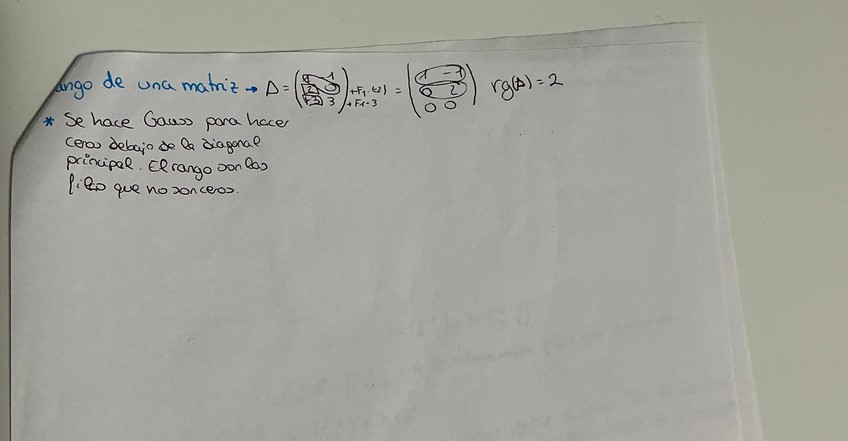 ango de una matriz → A = ( 1 -1 / 2 0 / -3 3 ) +F₁·(-2) +F₁·3 = ( 1 -1 / 0 2 / 0 0 ) rg(A) = 2
* Se hace Gauss para hacer
ceros debajo de la diagonal
principal. El rango son las
filas que no son ceros.